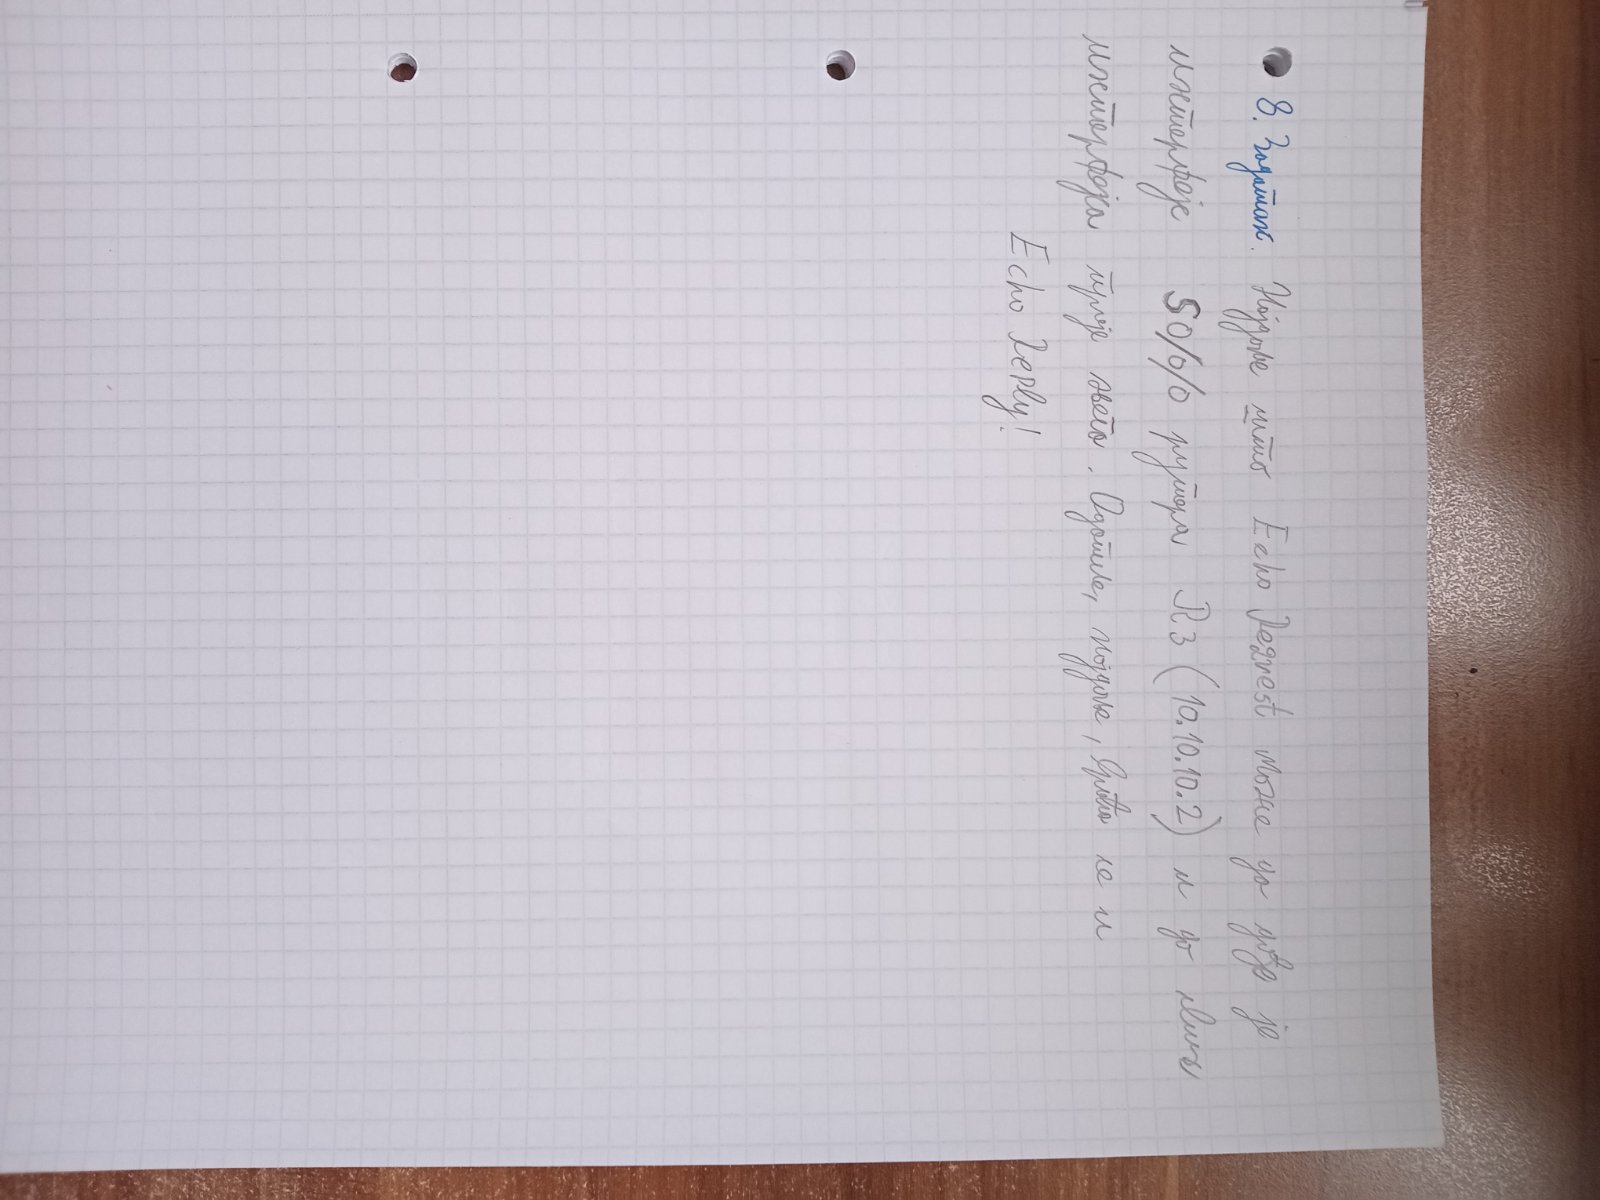 8. Задатак. Најдаље што Echo Request може да дође је
интерфејс S0/0/0 рутера R3 (10.10.10.2) и до свих
интерфејса пре њега. Одатле, најдаље, враћа се и
Echo Reply!